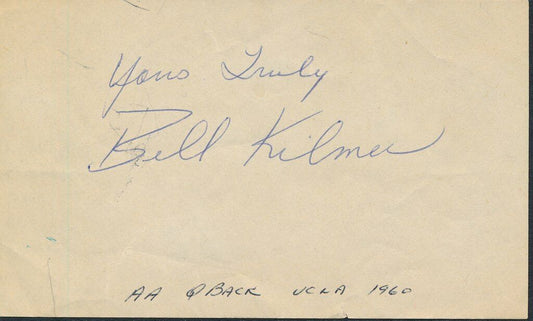 Yours Truly
Bill Kilmer
AA QBACK UCLA 1960